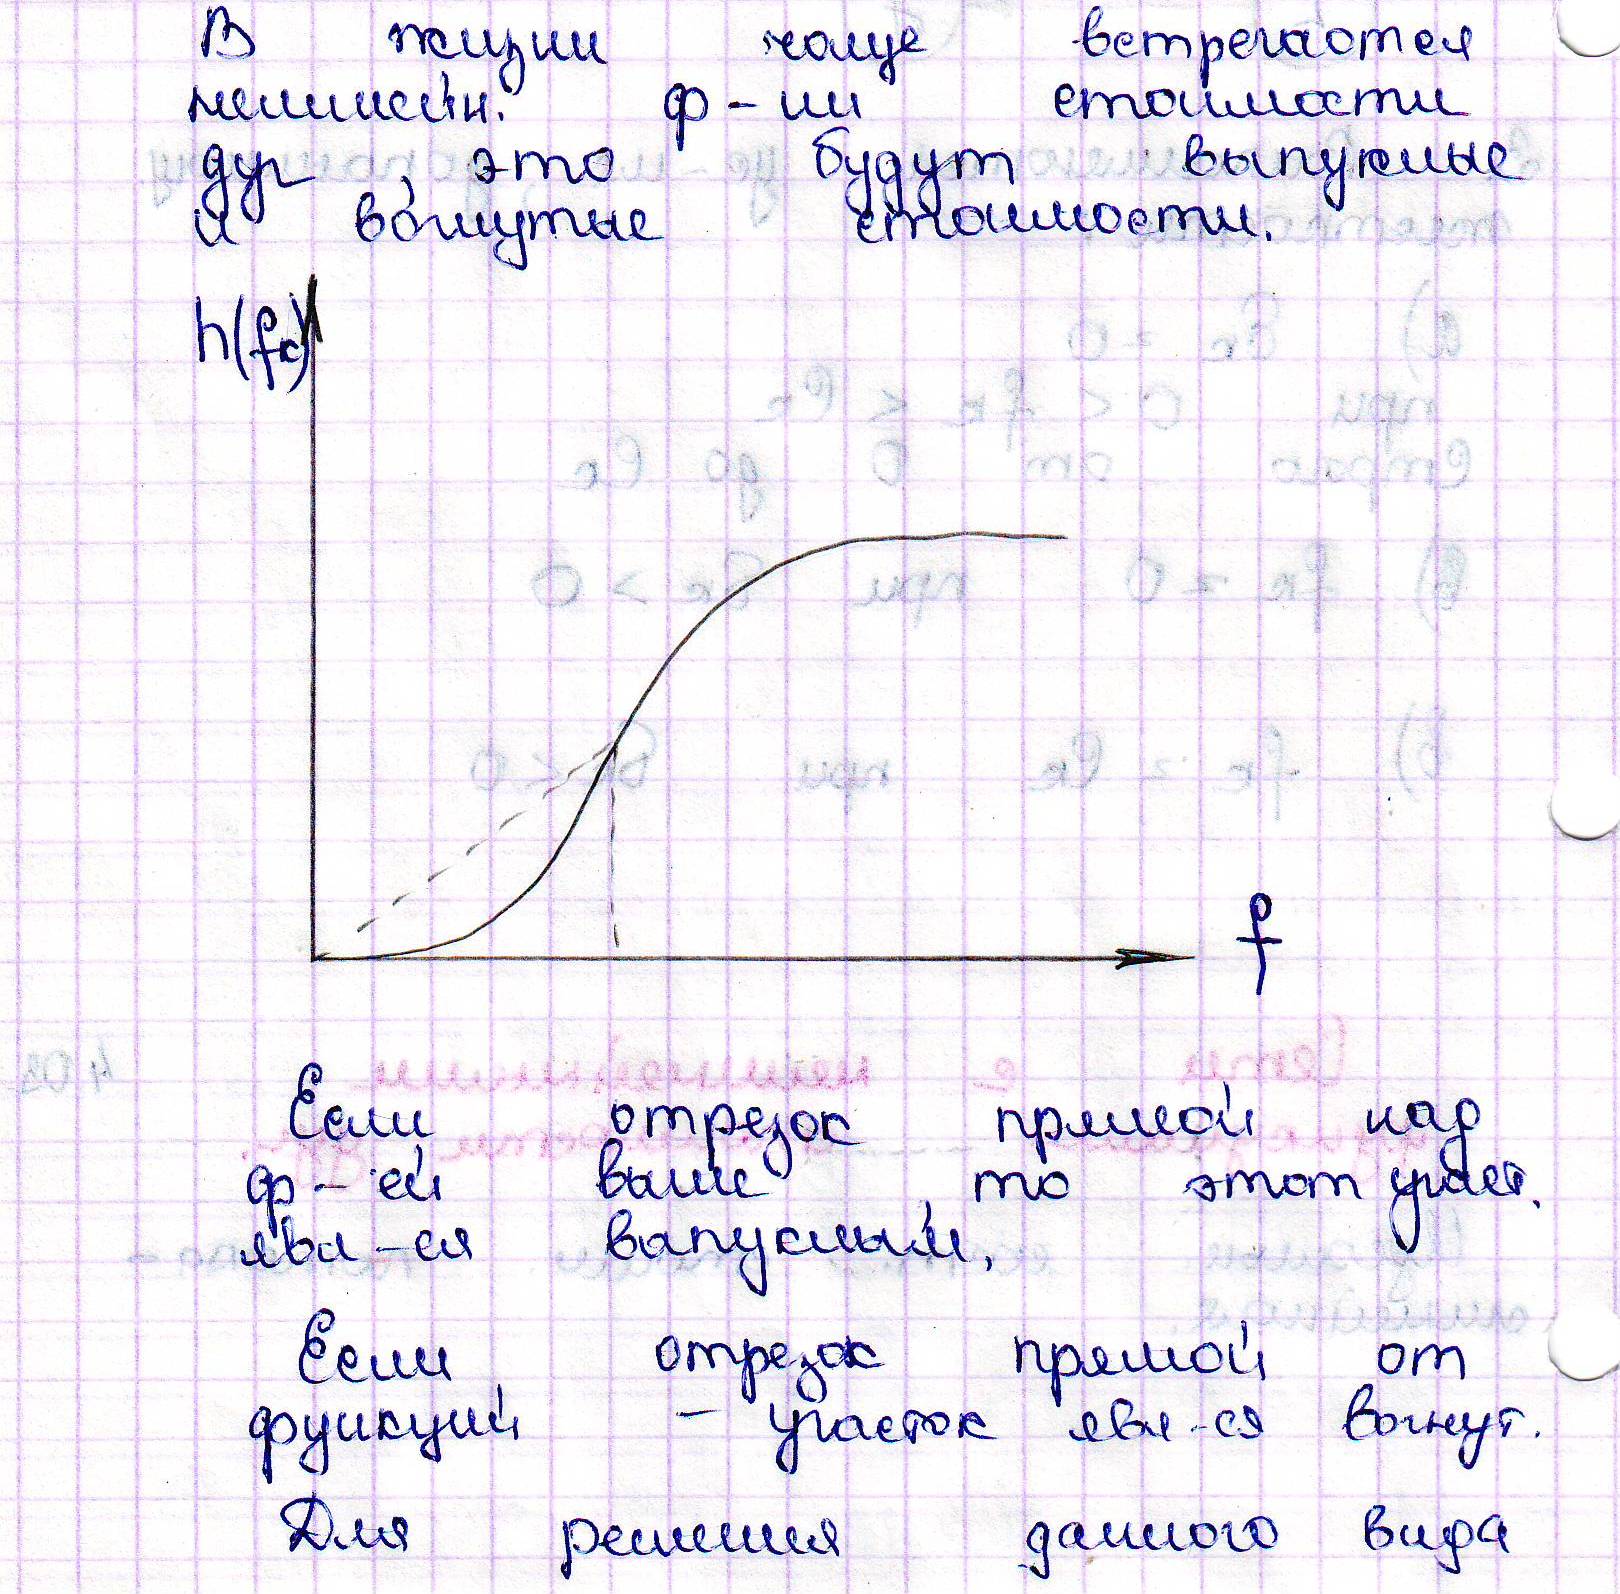 В жизни чаще встречаются
нелинейн. ф-ии стоимости
дуг, это будут выпуклые
и вогнутые стоимости.
h(fк)
f
Если отрезок прямой над
ф-ей выше, то этот участ.
явл-ся выпуклым,
Если отрезок прямой от
функций - участок явл-ся вогнут.
Для решения данного вида